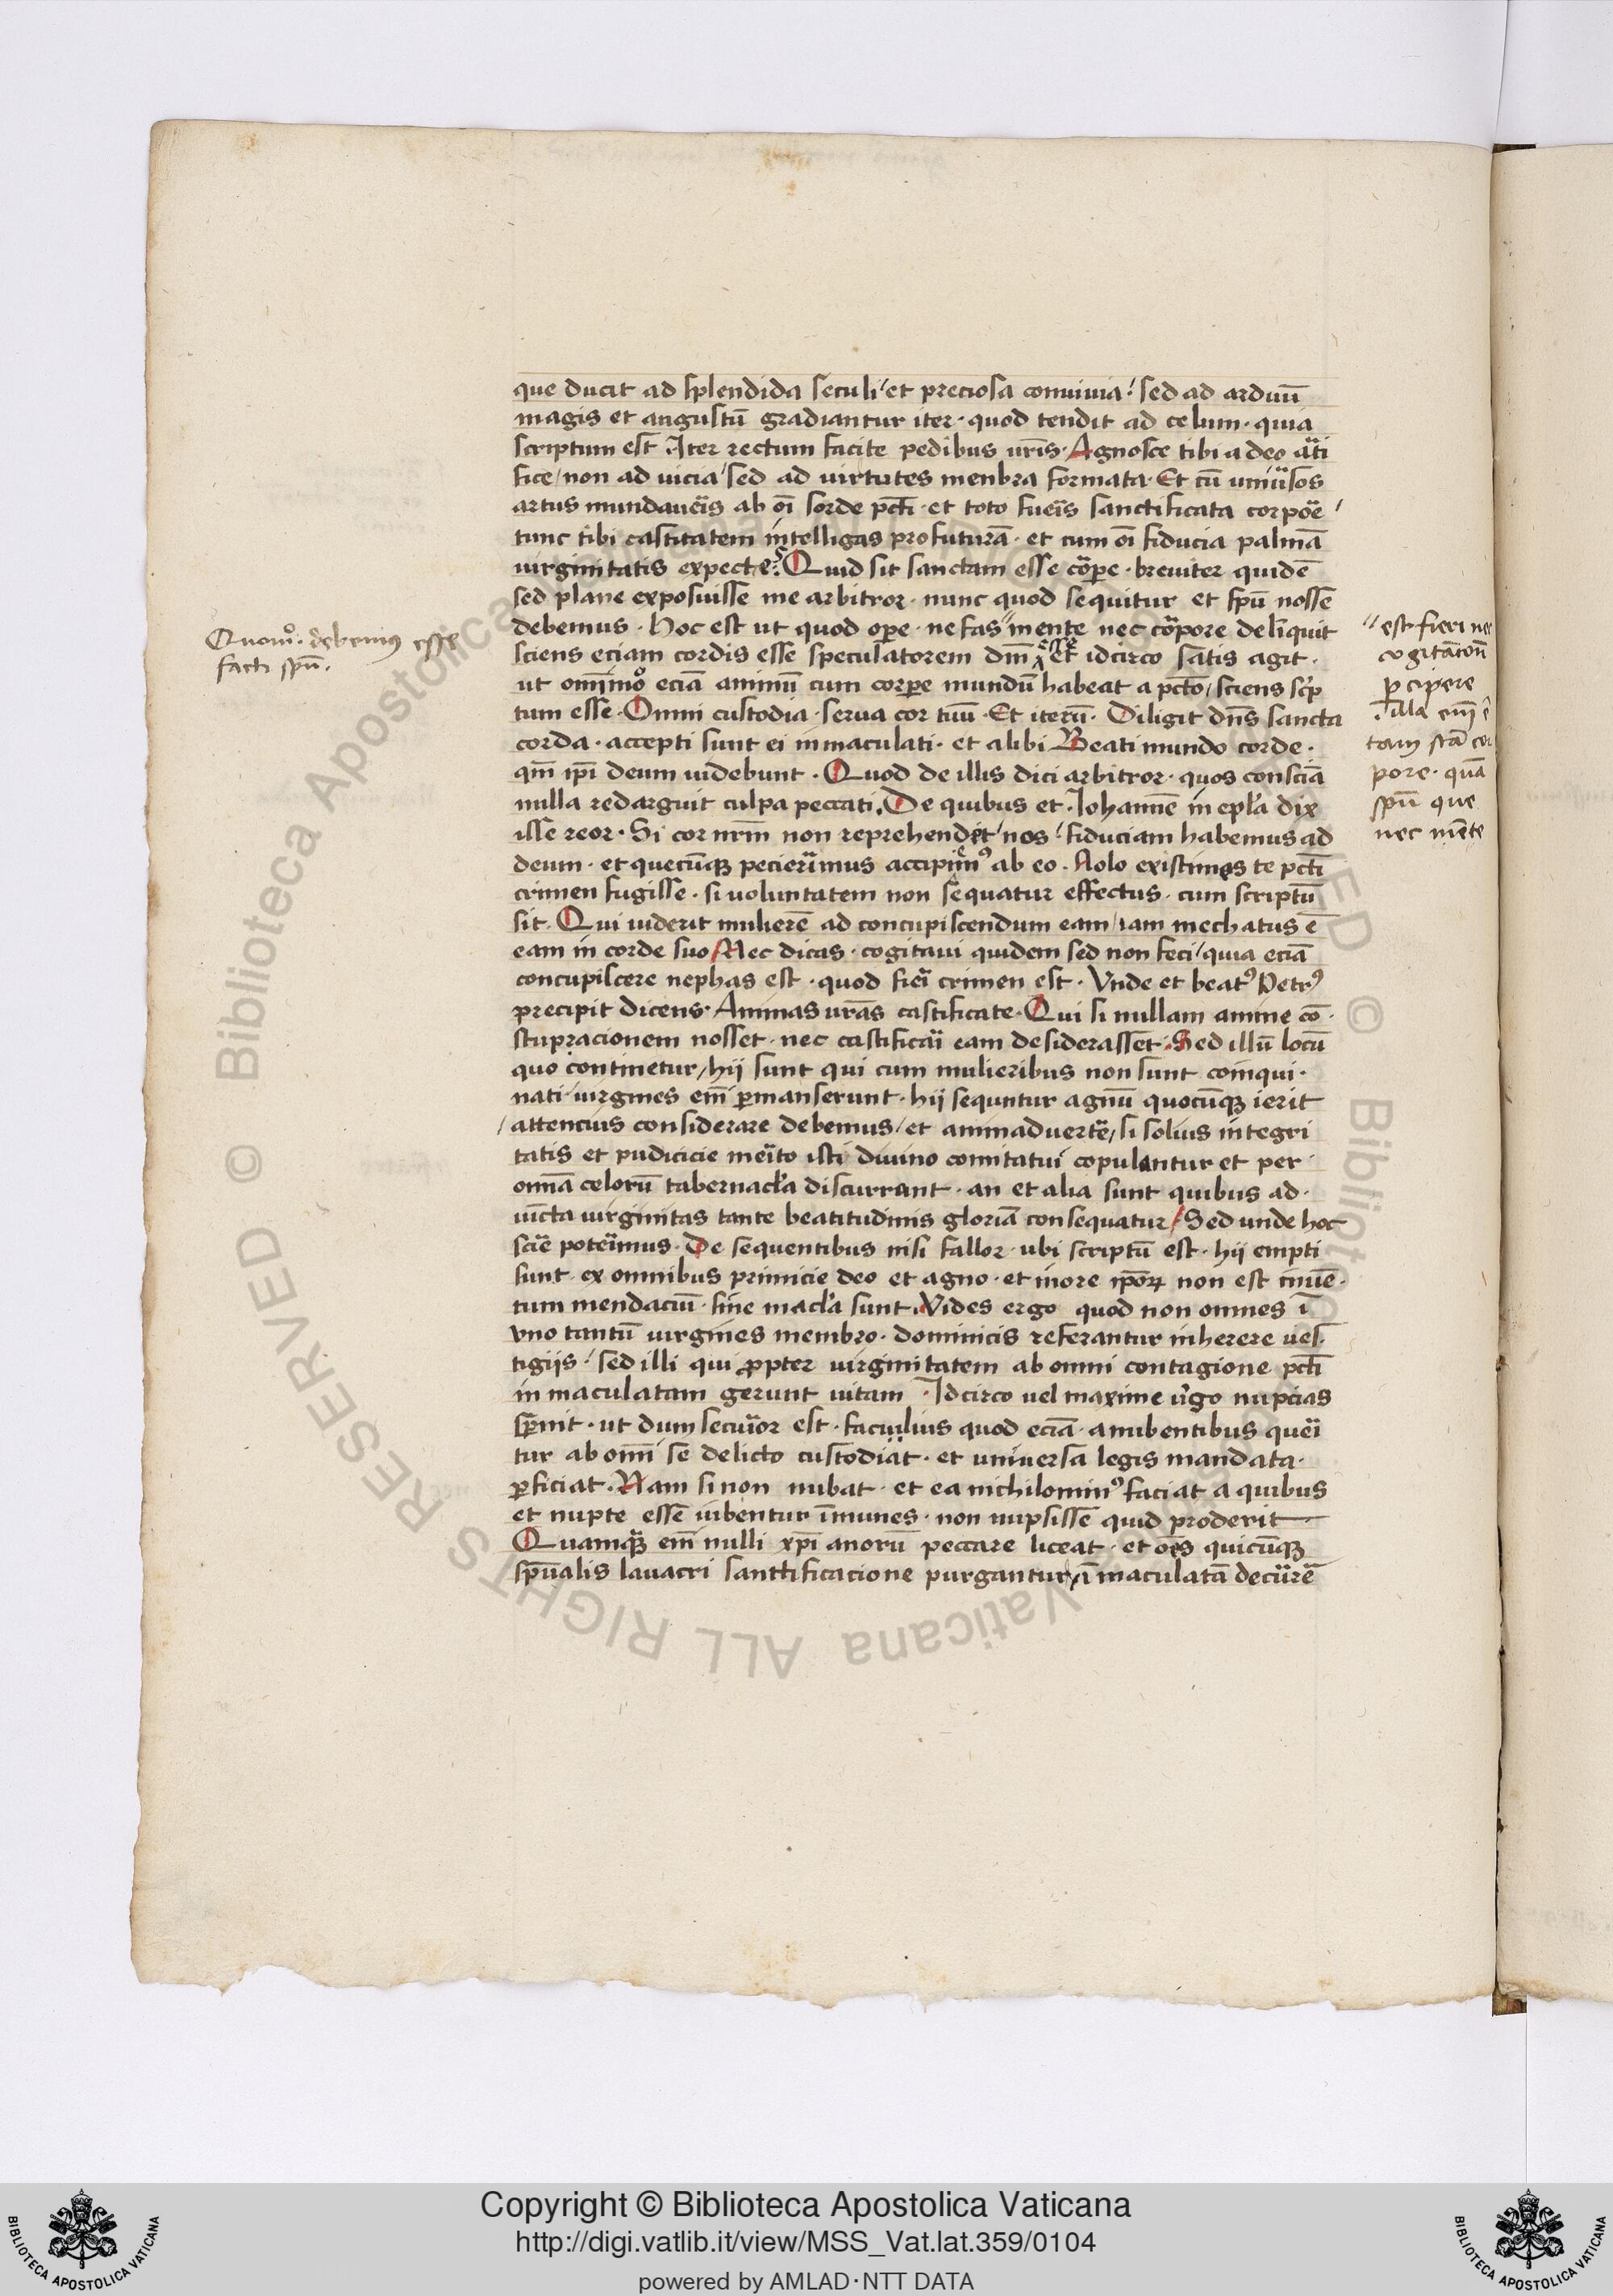 que ducit ad splendida seculi / et preciosa conuiuia / sed ad arduū
magis et angustū gradiantur iter · quod tendit ad celum · quia
scriptum est Iter rectum facite pedibus vr̄is · Agnosce tibi a deo arti
fice / non ad uicia / sed ad virtutes menbra formata · Et cū uniūsos
artus mundaueris ab oī sorde pctī · et toto fueris sanctificata corpore /
tunc tibi castitatem intelligas profuturā · et cum oī fiducia palmā
virginitatis expecte · Quid sit sanctam esse corpe · breuiter quidē
sed plane exposuisse me arbitror · nunc quod sequitur et spū nosse
debemus · Hoc est ut quod ope · nefas // mente nec corpore deliquit
sciens eciam cordis esse speculatorem dnm esse et idcirco satis agit ·
ut omnimo eciā animū cum corpe mundū habeat a pctō / sciens scrip
tum esse · Omni custodia · serua cor tuū · Et iterū · Diligit dn̄s sancta
corda · accepti sunt ei inmaculati · et alibi Beati mundo corde ·
qm̄ ipī deum uidebunt · Quod de illis dici arbitror · quos consciā
nulla redarguit culpa peccati · De quibus et · Iohannē in epl̄a dix
isse reor · Si cor nrm̄ non reprehendet / nos / fiduciam habemus ad
deum · et quecūq3 pecierimus accipiem⁹ ab eo · Nolo existimes te pctī
crimen fugisse · si uoluntatem non sequatur effectus · cum scriptū
sit · Qui uiderit mulierē ad concupiscendum eam / iam mechatus ē
eam in corde suo Nec dicas · cogitaui quidem sed non feci / quia eciā
concupiscere nephas est · quod fieri crimen est · Vnde et beat⁹ Petr⁹
precipit dicens · Animas vrās castificate · Qui si nullam anime co ·
stupracionem nosset · nec castificari eam desiderasset · Sed illū locū
quo continetur / hij sunt qui cum mulieribus non sunt coinqui ·
nati · uirgines em̄ pmanserunt · hij sequntur agnū quocūq3 ierit
/ attencius considerare debemus / et animaduertē / si solius integri
tatis et pudicicie merito isti diuino comitatui copulantur et per ·
omnā celorū tabernacl̄a discurrant · an et alia sunt quibus ad ·
iūcta uirginitas tante beatitudinis gloriā consequatur / Sed unde hoc
scire poterimus · De sequentibus nisi fallor · ubi scriptū est · hij empti
sunt · ex omnibus primicie deo et agno · et in ore ipōr non est inuē ·
tum mendaciū · sine macl̄a sunt · Vides ergo quod non omnes ī
vno tantū uirgines membro · dominicis referantur inherere ues ·
tigiis / sed illi qui ppter virginitatem ab omni contagione pctī
in maculatam gerunt uitam · Idcirco uel maxime v̄go nupcias
spernit · ut dum securior est · faciilius quod eciā · a nubentibus queri
tur ab omī se delicto custodiat · et uniuersa legis mandata ·
pficiat · Nam si non nubat · et ea nichilomin⁹ faciat a quibus
et nupte esse iubentur īmunes · non nupsisse quid proderit
Quamq3 em̄ nulli xp̄i anorū peccare liceat · et oēs quicūq3
spūalis lauacri sanctificacione purgantur / ī maculatā decurrē
Quomo · debemus esse
facti spū ·
// est fieri nec
cogitacōn
pcipere
· illa em̄ ē
tam scā cor
pore · quā
spū que
nec mēte
Copyright © Biblioteca Apostolica Vaticana
http://digi.vatlib.it/view/MSS_Vat.lat.359/0104
powered by AMLAD·NTT DATA
BIBLIOTECA APOSTOLICA VATICANA
BIBLIOTECA APOSTOLICA VATICANA
© Biblioteca Apostolica Vaticana ALL RIGHTS RESERVED